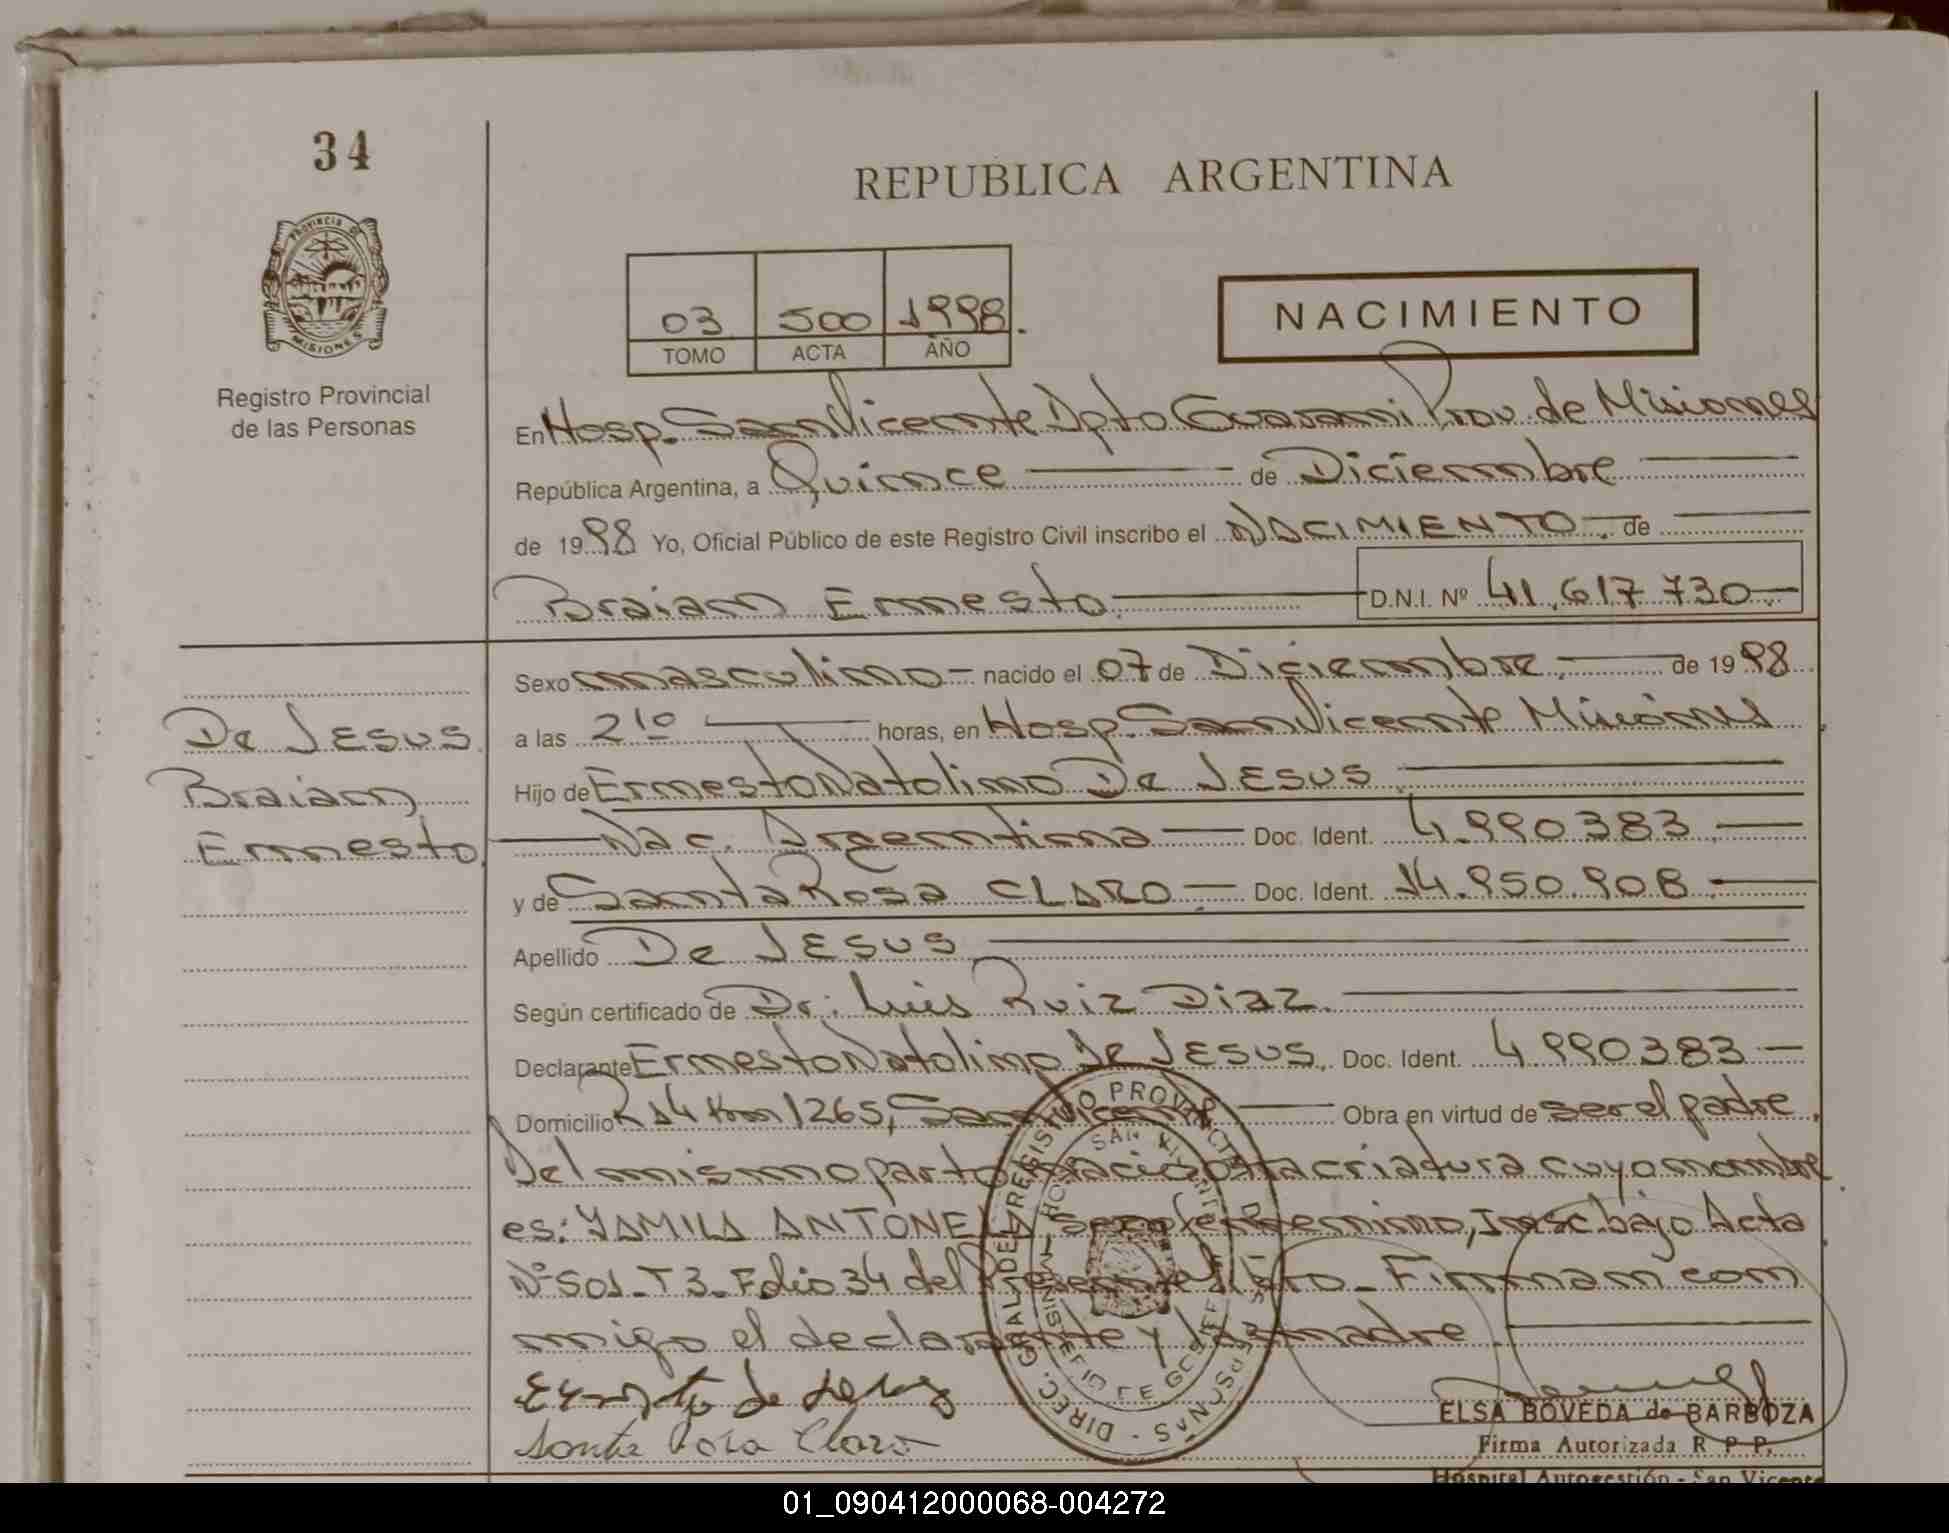 34
REPUBLICA ARGENTINA
PROVINCIA DE
MISIONES
Registro Provincial
de las Personas
03 500 1998.
TOMO ACTA AÑO
NACIMIENTO
En Hosp. San Vicente Dpto Guarani Prov. de Misiones
República Argentina, a Quince de Diciembre
de 1998 Yo, Oficial Público de este Registro Civil inscribo el NACIMIENTO. de
Braian Ernesto. D.N.I. Nº 41.617.730
Sexo masculino - nacido el 07 de Diciembre. de 1998
De JESUS
a las 2 10 horas, en Hosp. San Vicente Misiones
Braian
Hijo de Ernesto Natolino De JESUS
Ernesto
Nac. Argentina Doc. Ident. 4.990.383
y de Santa Rosa CLARO. Doc. Ident. 14.950.908
Apellido De JESUS
Según certificado de Dr: Luis Ruiz Diaz.
Declarante Ernesto Natolino De JESUS. Doc. Ident. 4.990.383
Domicilio R 14 Km 1265, San Vicente Obra en virtud de ser el padre.
Del mismo parto nacio otra criatura cuyo nombre
es: YAMILA ANTONELA Sexo femenino, Insc. bajo Acta
Nº 501 - T 3 - Folio 34 del Presente Libro - Firman con
migo el declarante y la madre
Ernesto de Jesus
Santa Rosa Claro
ELSA BOVEDA de BARBOZA
Firma Autorizada R P P.
Hospital Autogestión - San Vicente
01_090412000068-004272